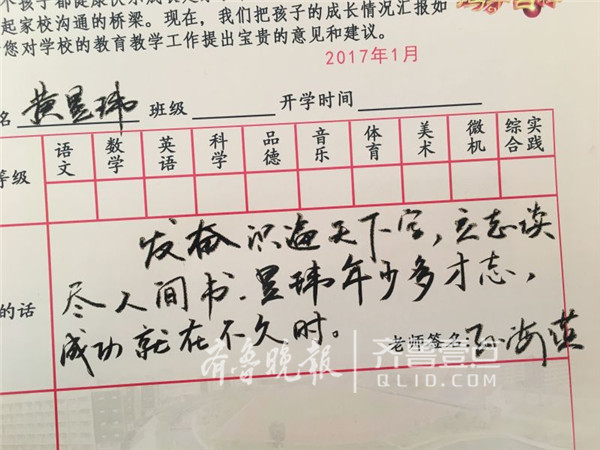 个孩子都健康快乐成长是
起家校沟通的桥梁。现在，我们把孩子的成长情况汇报如
您对学校的教育教学工作提出宝贵的意见和建议。
2017年1月
名 黄昱玮 班级 开学时间
等级 语文 数学 英语 科学 品德 音乐 体育 美术 微机 综合实践
发奋识遍天下字，立志读
尽人间书。昱玮年少多才志，
的话
成功就在不久时。
老师签名 孙海英
齐鲁晚报 齐鲁壹点
QLID.COM